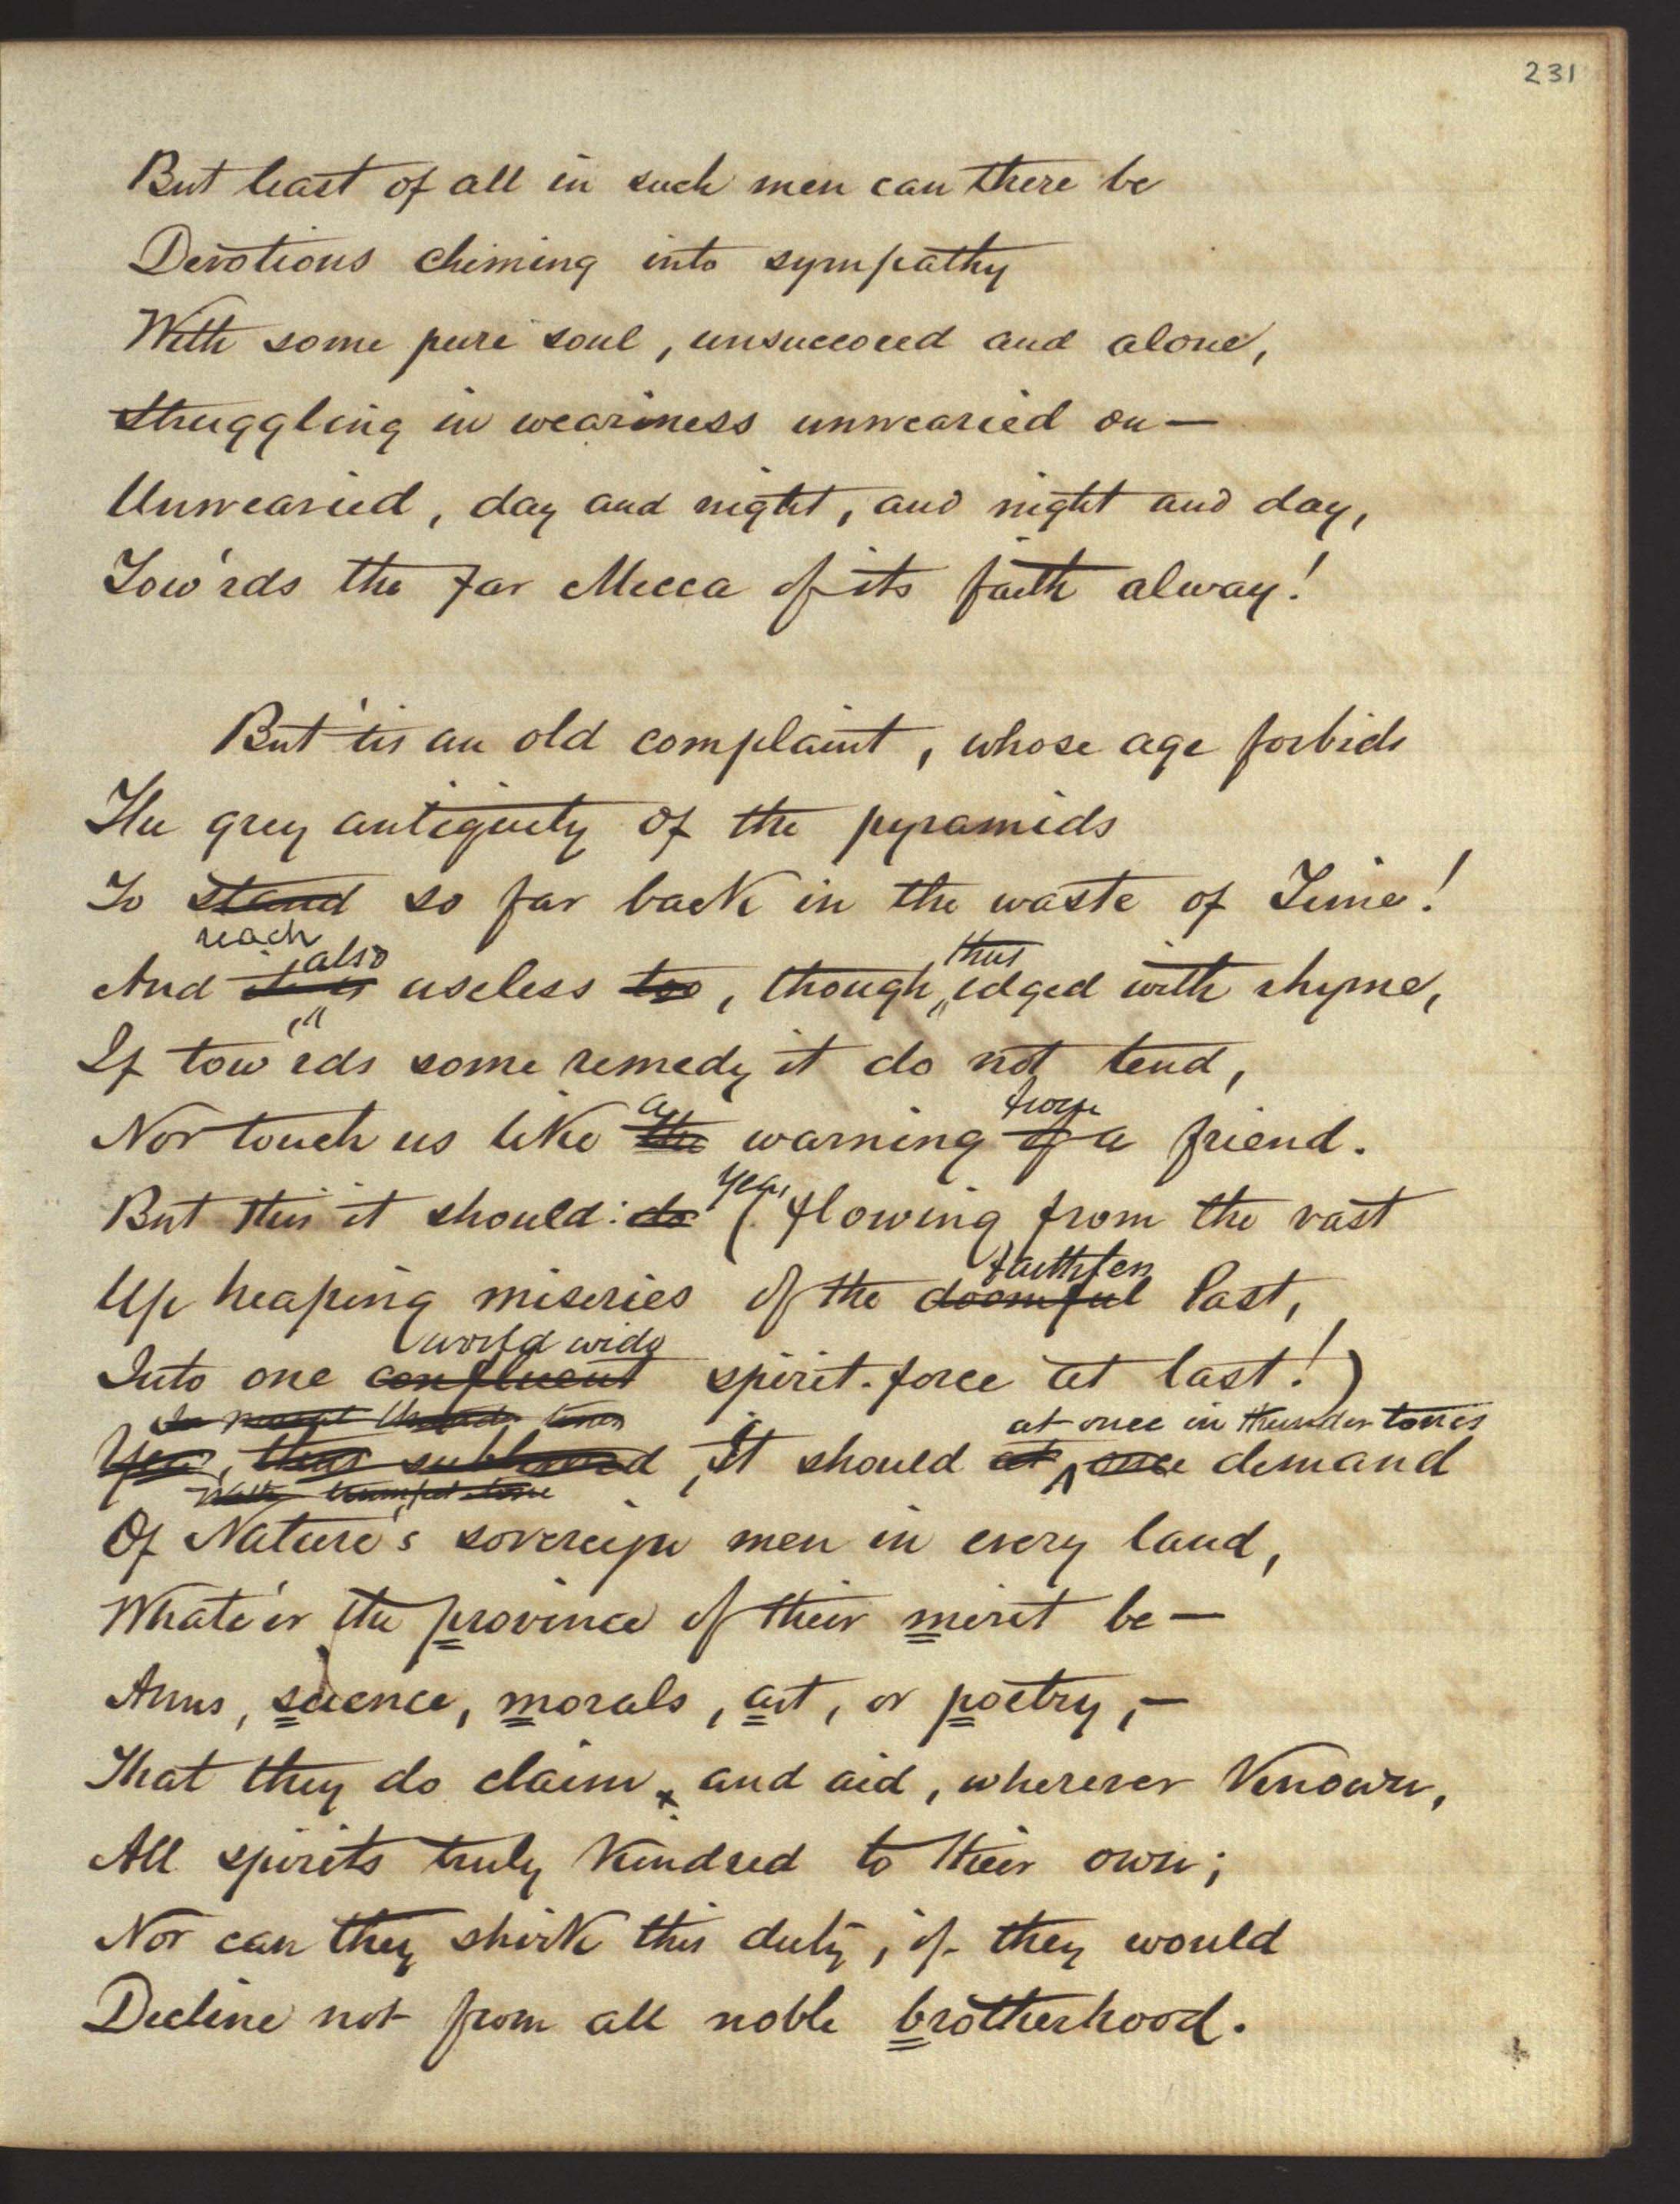 231
But least of all in such men can there be
Devotions chiming into sympathy
With some pure soul, unsuccored and alone,
Struggling in weariness unwearied on—
Unwearied, day and night, and night and day,
Tow'rds the far Mecca of its faith alway!
But 'tis an old complaint, whose age forbids
The grey antiquity of the pyramids
To stand so far back in the waste of Time!
reach
also thus
And it is useless too, though edged with rhyme,
If tow'rds some remedy it do not tend,
a from
Nor touch us like the warning of a friend.
yea,
But this it should: do (flowing from the vast
faithless
Up heaping miseries of the doomful Past,
world wide
Into one confluent spirit-force at last!)
at once in thunder tones
Yea, thus sublimed, It should at once demand
With trumpet tone
Of Nature's sovereign men in every land,
Whate'er the province of their merit be—
Arms, science, morals, art, or poetry,—
That they do claim, and aid, wherever known,
All spirits truly kindred to their own;
Nor can they shirk this duty, if they would
Decline not from all noble brotherhood.